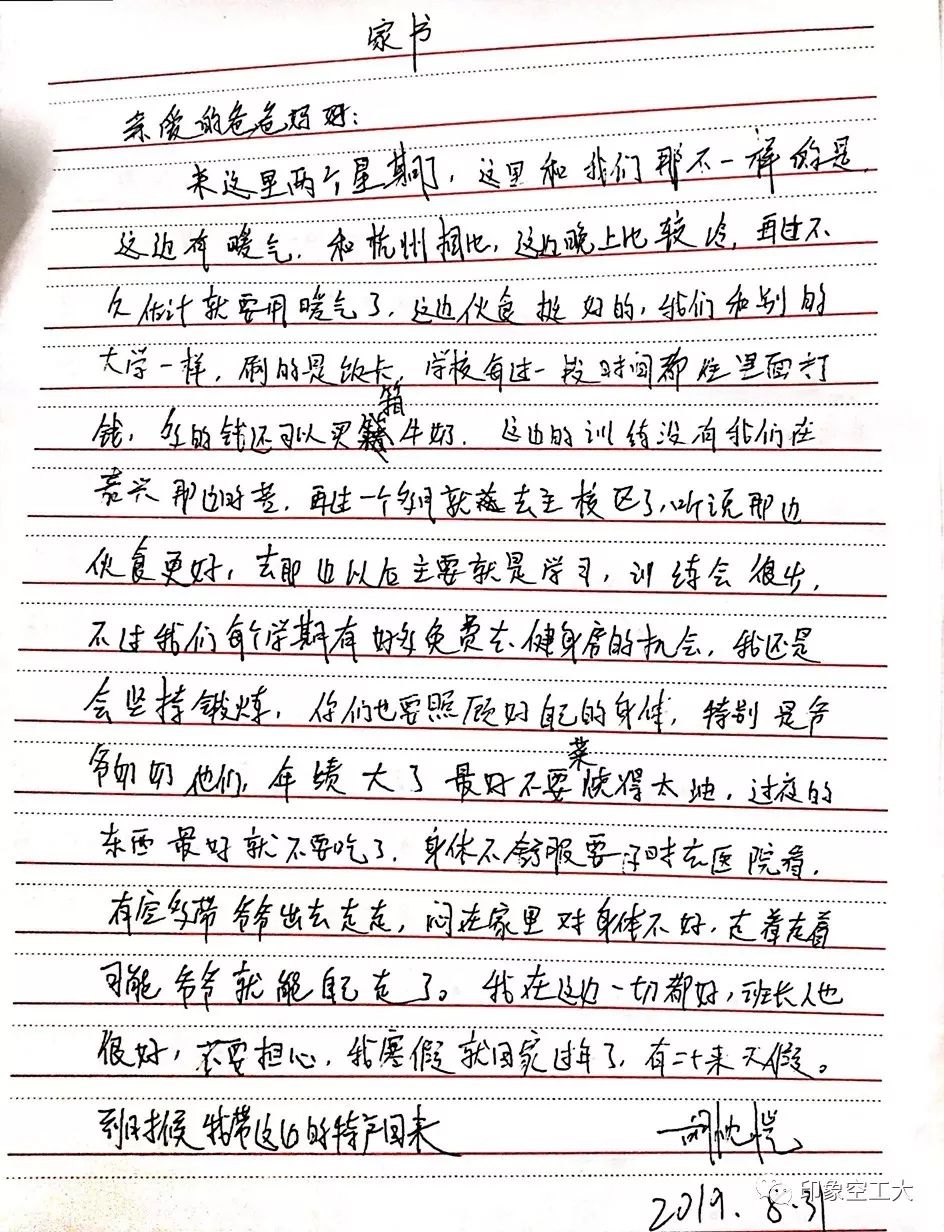 家书
亲爱的爸爸妈妈:
来这里两个星期了,这里和我们那不一样的是,
这边有暖气,和杭州相比,这边晚上比较冷,再过不
久估计就要用暖气了,这边伙食挺好的,我们和别的
大学一样,刷的是饭卡,学校每过一段时间都往里面打
钱,多的钱还可以买箱牛奶.这边的训练没有我们在
嘉兴那边时苦,再过一个多月就去主校区了,听说那边
伙食更好,去那边以后主要就是学习,训练会很少,
不过我们每个学期有好多免费去健身房的机会,我还是
会坚持锻炼,你们也要照顾好自己的身体,特别是爷
爷奶奶他们,年绩大了最好不要菜烧得太油,过夜的
东西最好就不要吃了.身体不舒服要及时去医院看,
有空多带爷爷出去走走,闷在家里对身体不好,走着走着
可能爷爷就能自己走了。我在这边一切都好,班长人也
很好,不要担心,我寒假就回家过年了,有二十来天假。
到时候我带这边的特产回来
2019.8.31
印象空工大